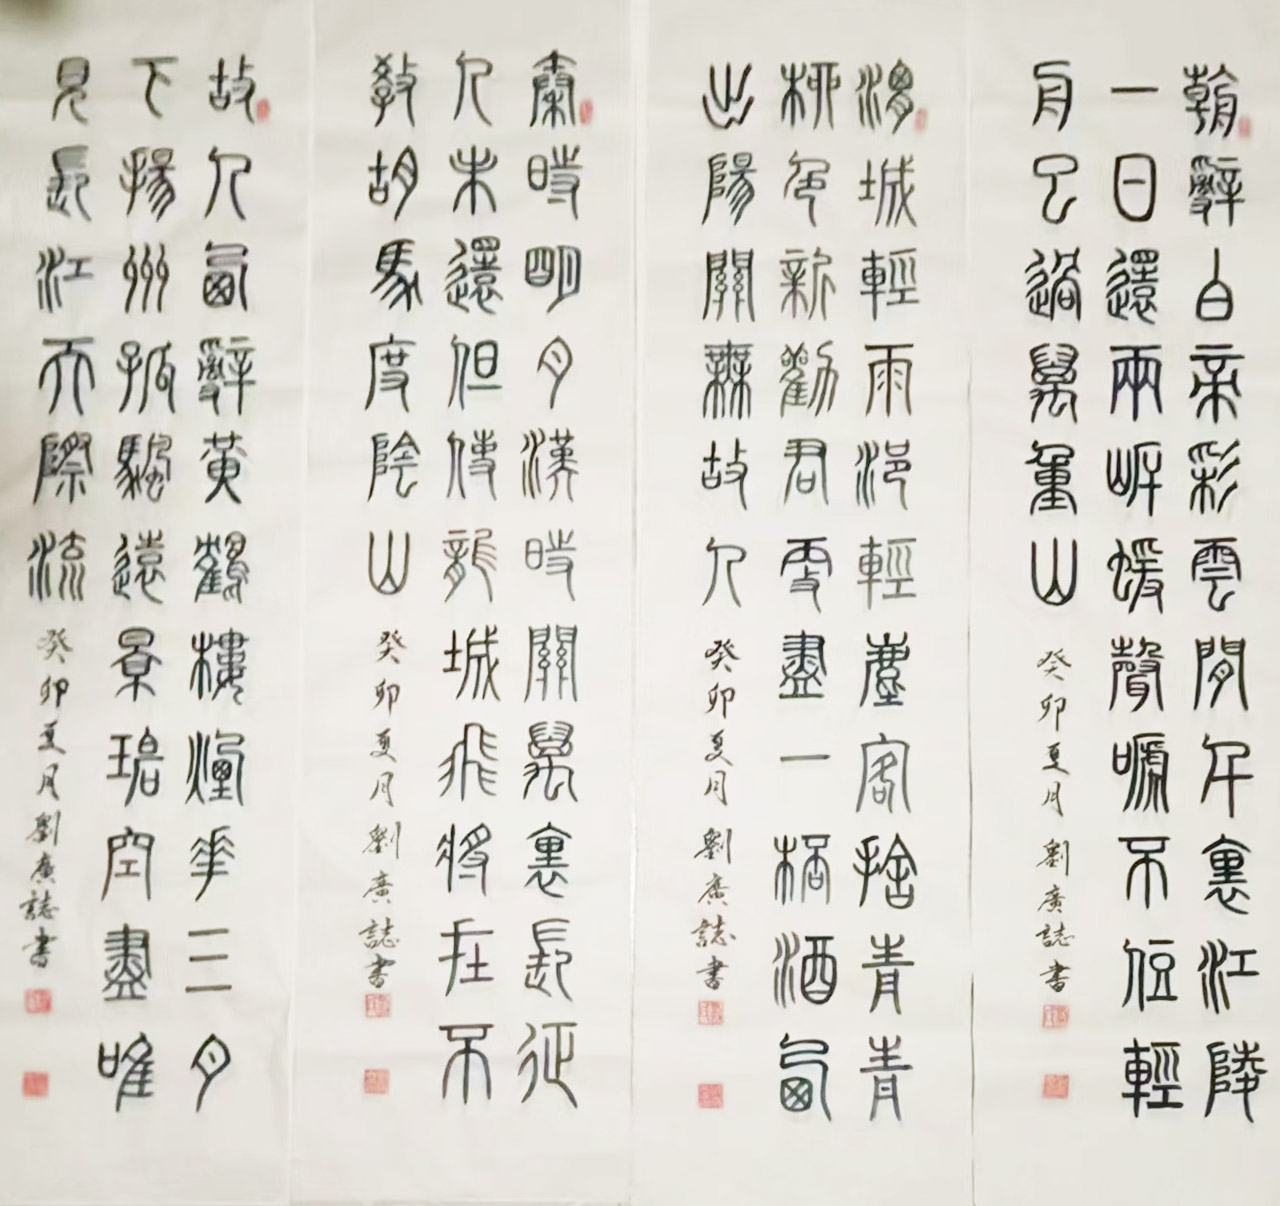 朝辭白帝彩雲間千裏江陵
一日還兩岸蝯聲嗁不住輕
舟已過萬重山
癸卯夏月劉廣誌書
渭城輕雨浥輕塵客捨青青
柳色新勸君更盡一桮酒西
出陽關無故人
癸卯夏月劉廣誌書
秦時明月漢時關萬裏長征
人未還但使龍城飛將在不
教胡馬度陰山
癸卯夏月劉廣誌書
故人西辭黃鶴樓煙花三月
下揚州孤颿遠景碧空盡唯
見長江天際流
癸卯夏月劉廣誌書